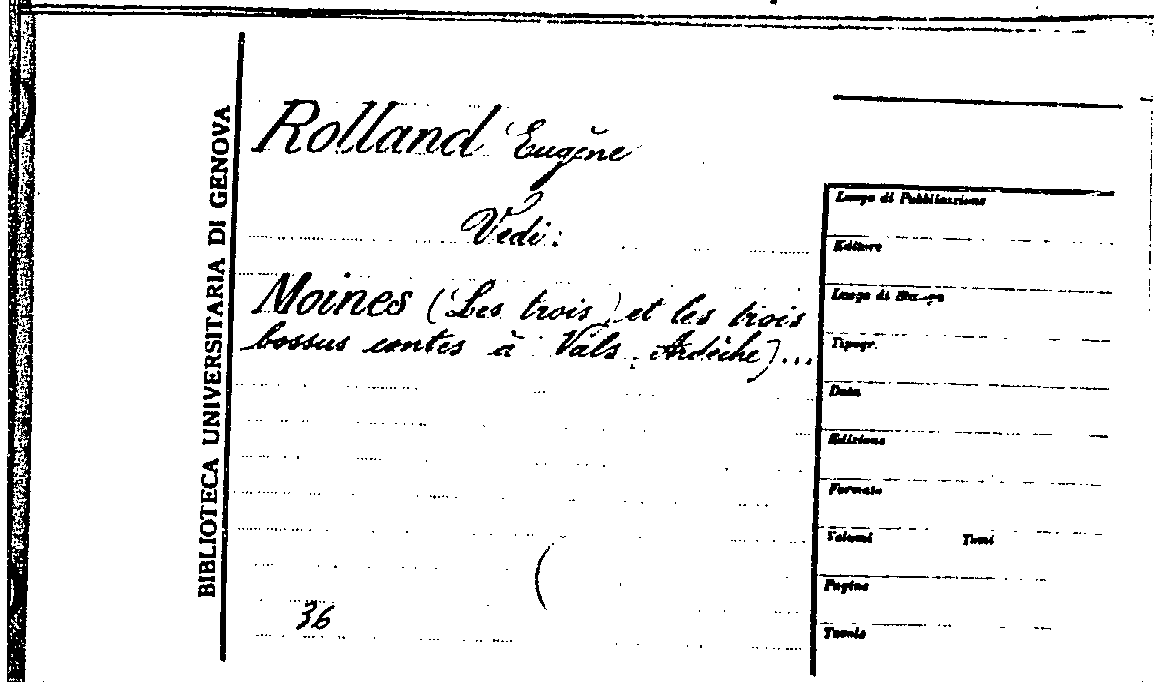 BIBLIOTECA UNIVERSITARIA DI GENOVA
Rolland Eugène
Vedi:
Moines (Les trois) et les trois
bossus contes à Vals, Ardèche)...
36
Luogo di Pubblicazione
Editore
Luogo di Stampa
Tipogr.
Data
Edizione
Formato
Volumi Tomi
Pagine
Tavole